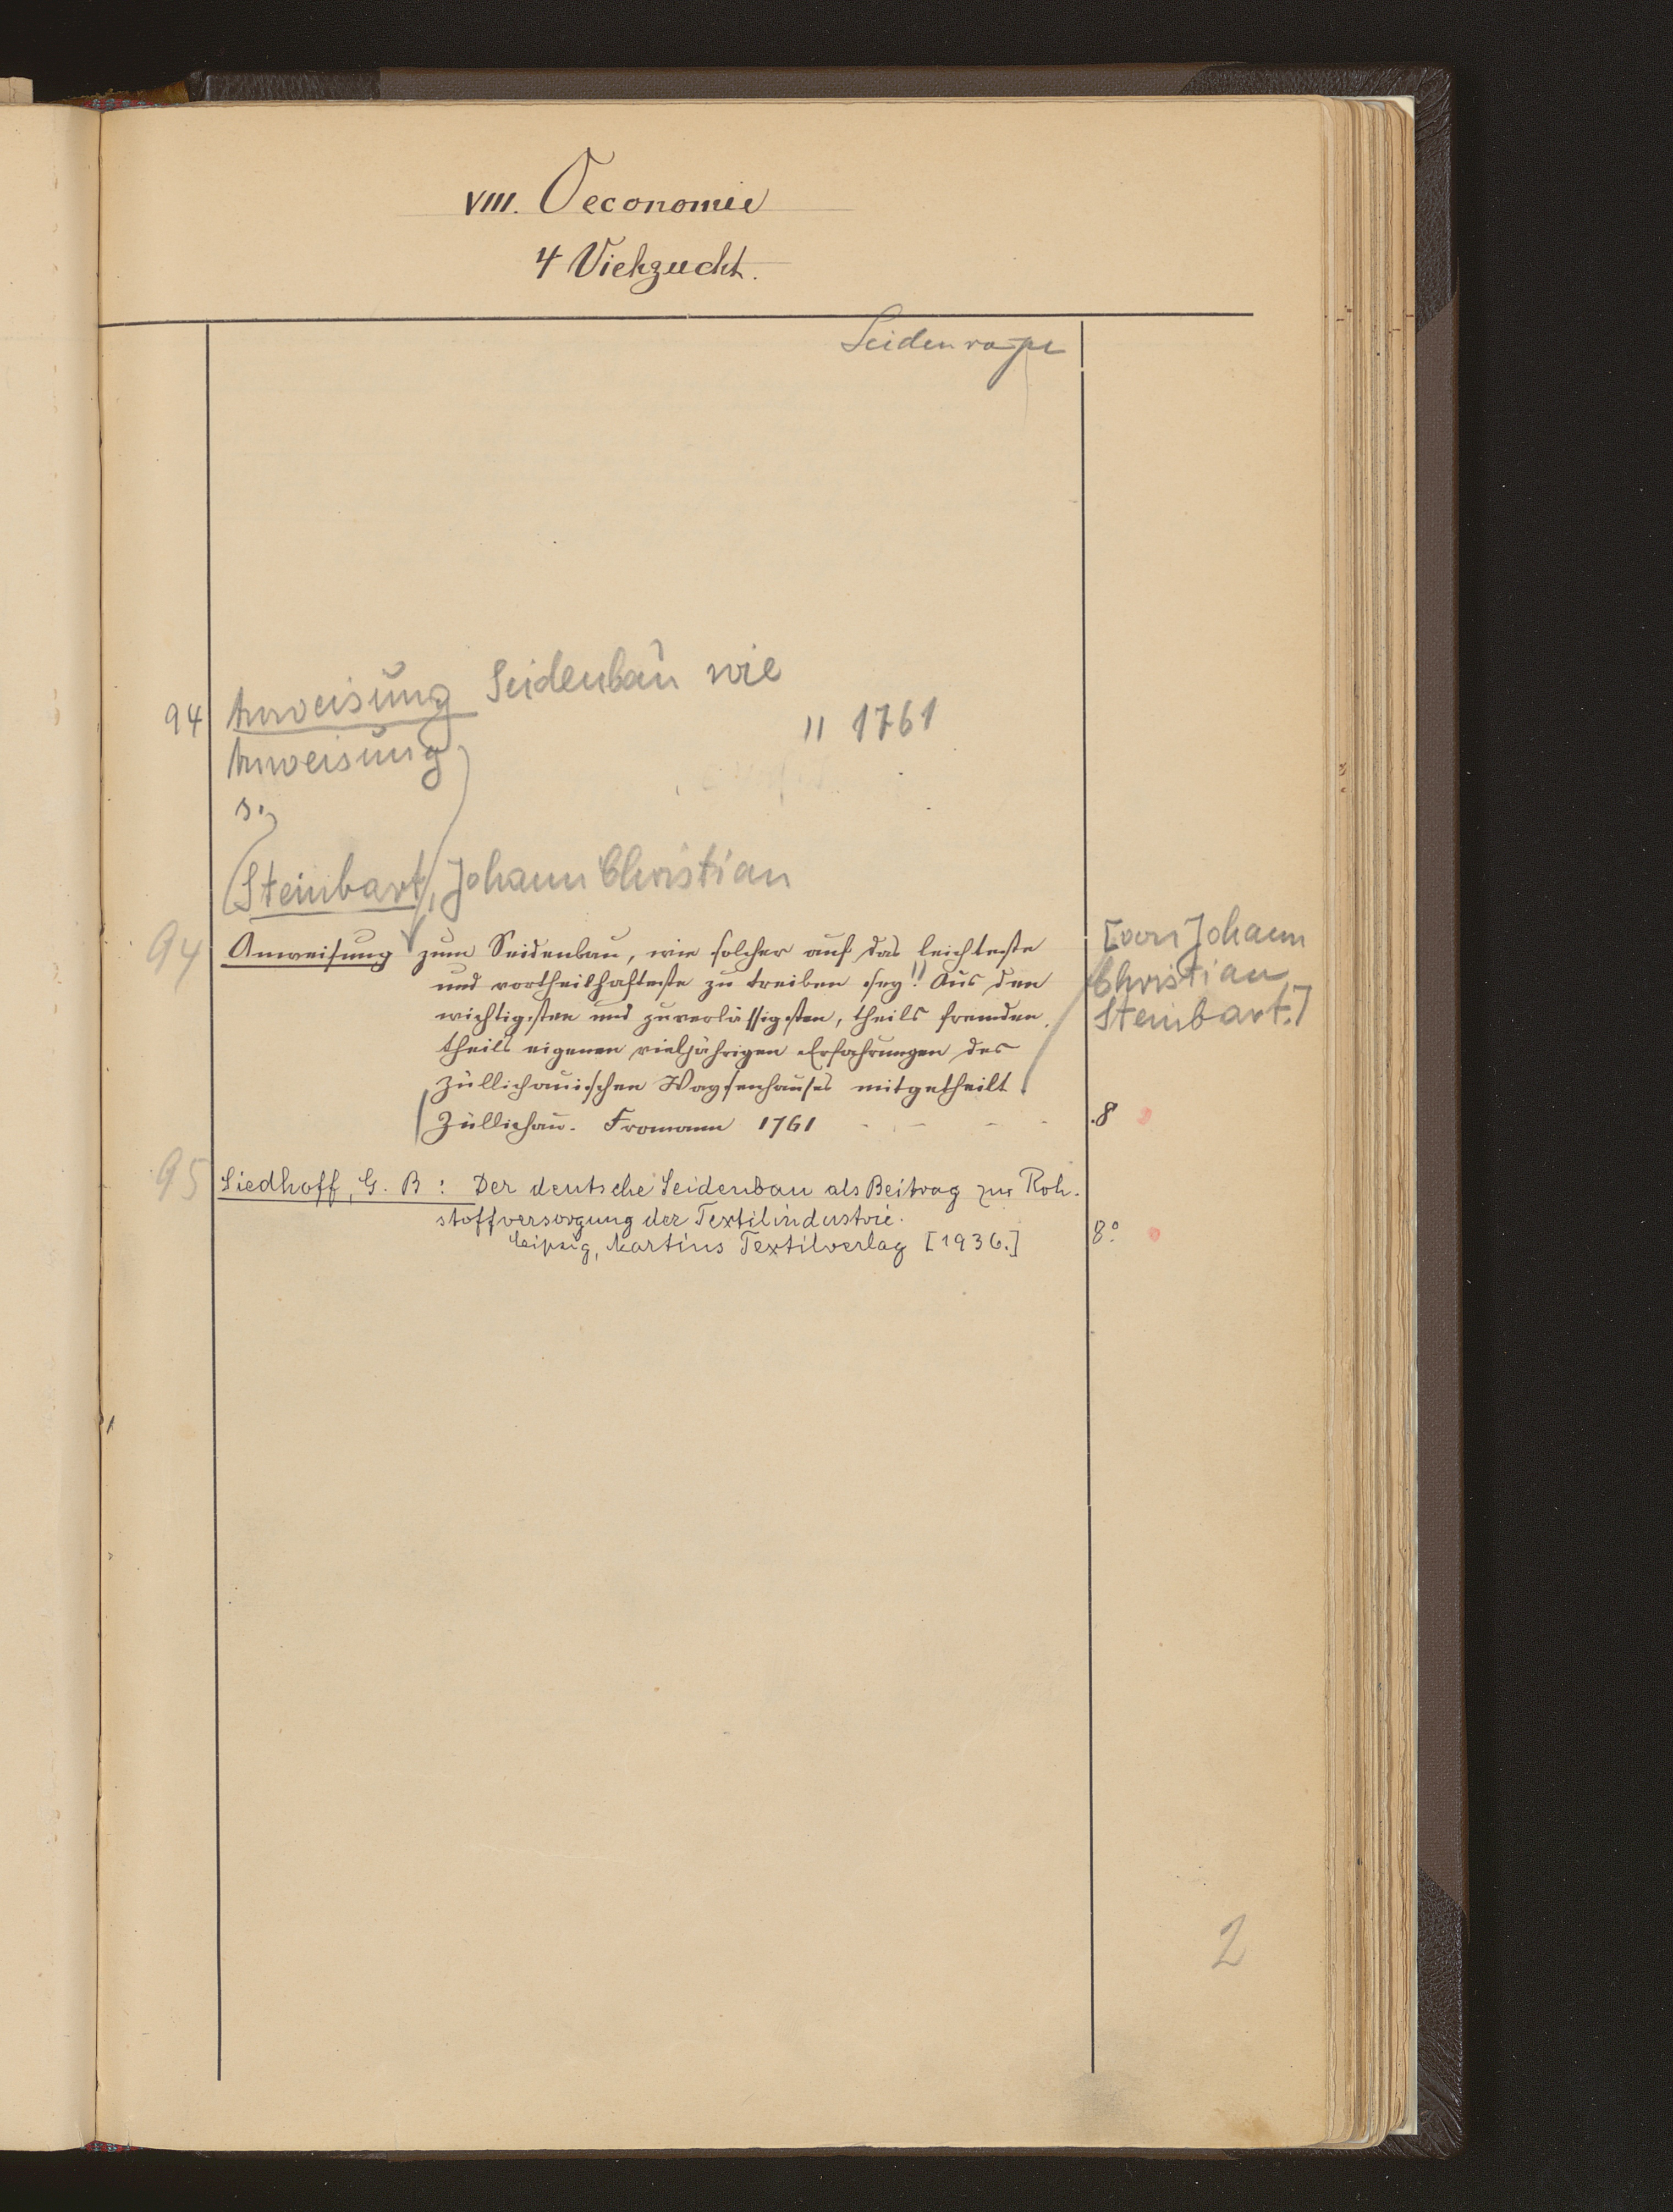 VIII. Oeconomie
4 Viehzucht.
94 Anweisung Seidenbau wie
" 1761
Anweisung
s.
(Steinbart, Johann Christian
94 Anweisung zum Seidenbau, wie solcher auf das leichteste
und vortheilhafteste zu treiben sey!! Aus den
wichtigsten und zuverlässigsten, theils fremden,
theils eigenen vieljährigen Erfahrungen des
Züllichauischen Waysenhauses mitgetheilt.
Züllichau. Fromann 1761 - - - - 8
[von Johann
Christian
Steinbart.]
95 Siedhoff, G. B: Der deutsche Seidenbau als Beitrag zur Roh-
stoffversorgung der Textilindustrie.
Leipzig, Martins Textilverlag [1936.] 8°
2